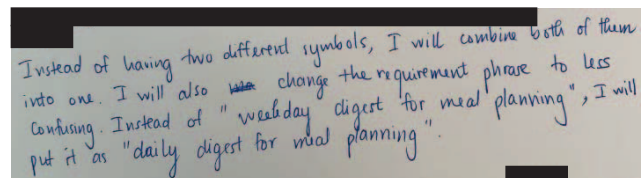 Instead of having two different symbols, I will combine both of them
into one. I will also change the requirement phrase to less
confusing. Instead of "weekday digest for meal planning", I will
put it as "daily digest for meal planning".